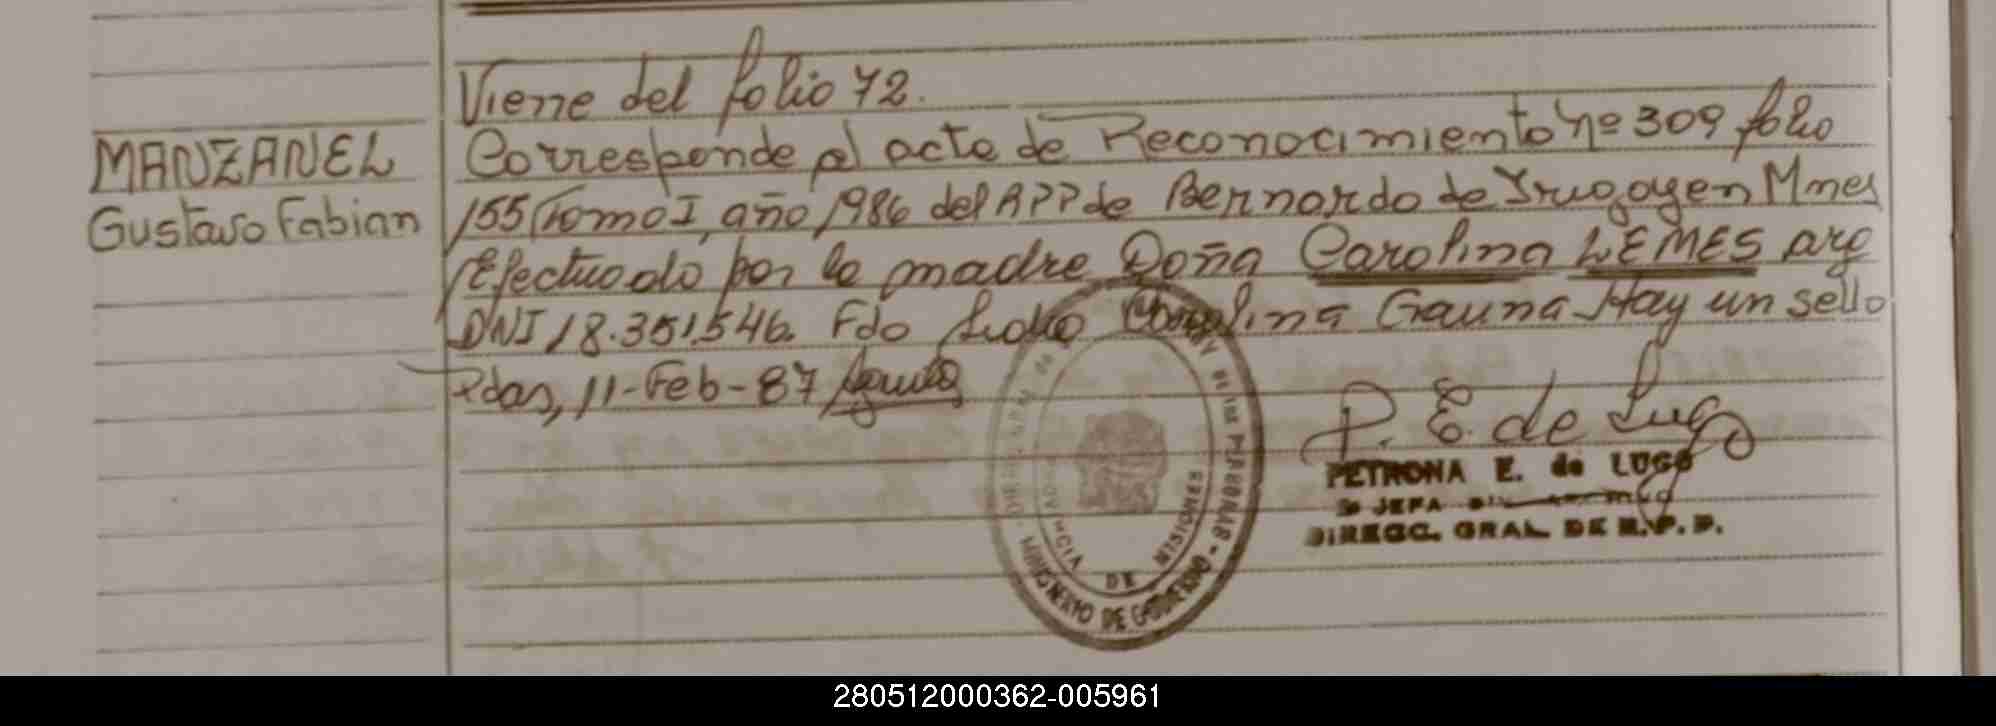 Viene del folio 72.
MANZANEL
Gustavo Fabian
Corresponde al acta de Reconocimiento nº 309 folio
155 Tomo I, año 1986 del RPP de Bernardo de Irugoyen Mnes
Efectuado por la madre Doña Carolina LEMES arg
DNI 18.351.546. Fdo Carolina Gauna Hay un sello
Pdas, 11-Feb-87
P. E. de Lugo
PETRONA E. de LUGO
JEFA
DIRECC. GRAL DE R.P.P.
PROVINCIA DE MISIONES
MINISTERIO DE GOBIERNO
280512000362-005961